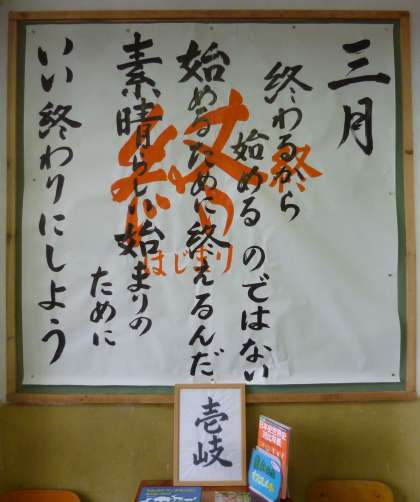 三月
終わるから
始める のではない
始めるために終えるんだ
素晴らしい始まりの
ために
いい終わりにしよう
終
はじまり
壱岐